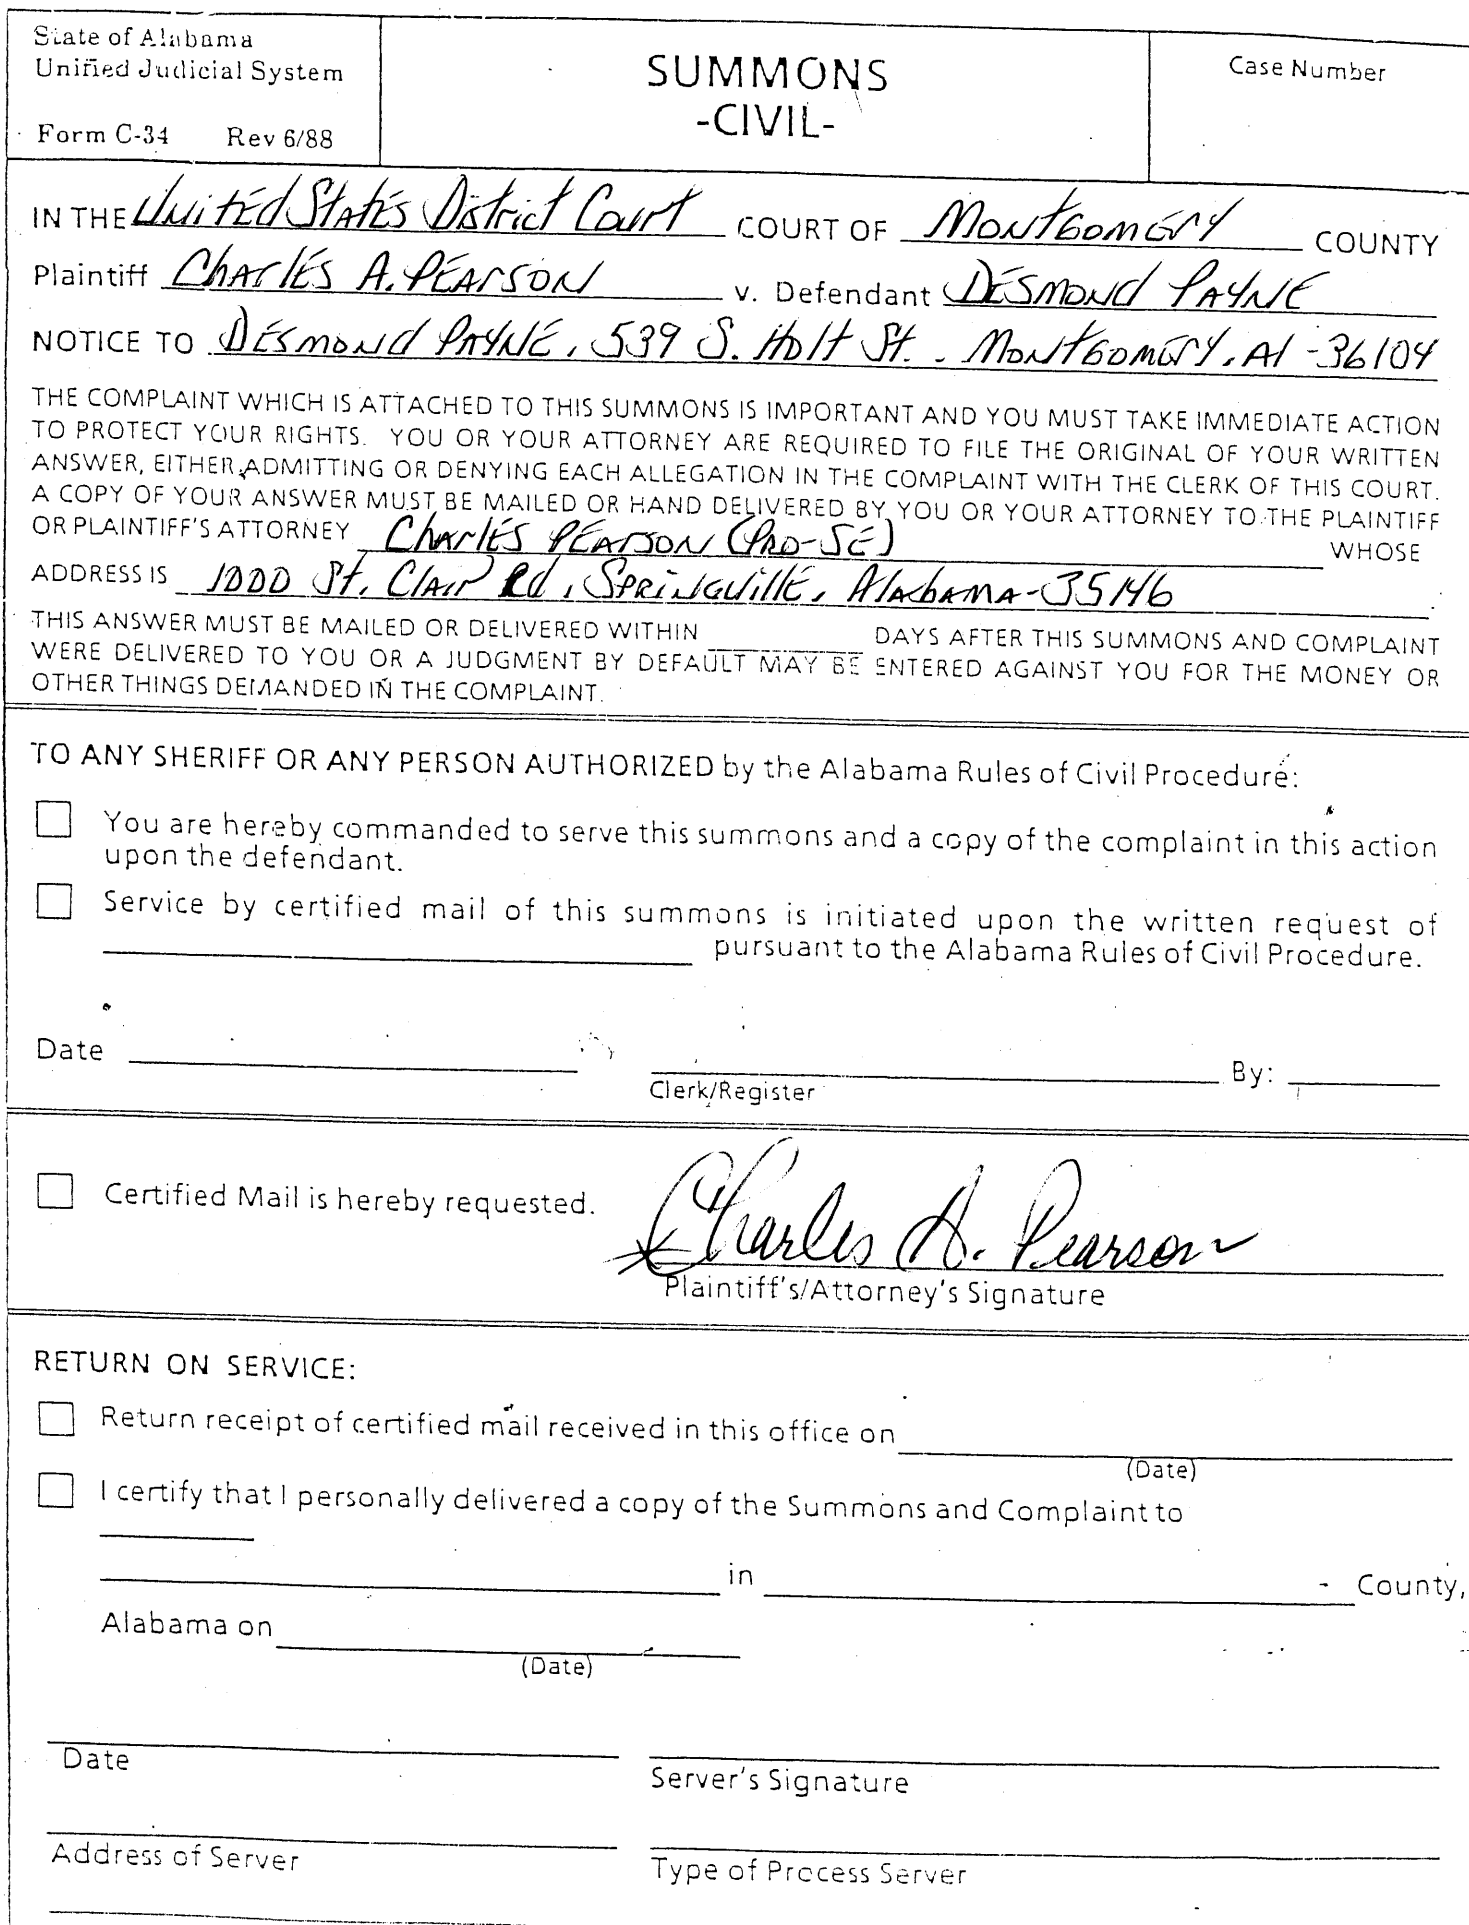 State of Alabama
Unified Judicial System
Form C-34 Rev 6/88
SUMMONS
-CIVIL-
Case Number
IN THE United States District Court COURT OF Montgomery COUNTY
Plaintiff Charles A. Pearson v. Defendant Desmond Payne
NOTICE TO Desmond Payne, 539 S. Holt St. - Montgomery, Al - 36104
THE COMPLAINT WHICH IS ATTACHED TO THIS SUMMONS IS IMPORTANT AND YOU MUST TAKE IMMEDIATE ACTION
TO PROTECT YOUR RIGHTS. YOU OR YOUR ATTORNEY ARE REQUIRED TO FILE THE ORIGINAL OF YOUR WRITTEN
ANSWER, EITHER ADMITTING OR DENYING EACH ALLEGATION IN THE COMPLAINT WITH THE CLERK OF THIS COURT.
A COPY OF YOUR ANSWER MUST BE MAILED OR HAND DELIVERED BY YOU OR YOUR ATTORNEY TO THE PLAINTIFF
OR PLAINTIFF'S ATTORNEY Charles Pearson (Pro-se) WHOSE
ADDRESS IS 1000 St. Clair Rd, Springville, Alabama - 35146
THIS ANSWER MUST BE MAILED OR DELIVERED WITHIN DAYS AFTER THIS SUMMONS AND COMPLAINT
WERE DELIVERED TO YOU OR A JUDGMENT BY DEFAULT MAY BE ENTERED AGAINST YOU FOR THE MONEY OR
OTHER THINGS DEMANDED IN THE COMPLAINT.
TO ANY SHERIFF OR ANY PERSON AUTHORIZED by the Alabama Rules of Civil Procedure:
You are hereby commanded to serve this summons and a copy of the complaint in this action
upon the defendant.
Service by certified mail of this summons is initiated upon the written request of
pursuant to the Alabama Rules of Civil Procedure.
Date By:
Clerk/Register
Certified Mail is hereby requested.
Charles A. Pearson
Plaintiff's/Attorney's Signature
RETURN ON SERVICE:
Return receipt of certified mail received in this office on
(Date)
I certify that I personally delivered a copy of the Summons and Complaint to
in County,
Alabama on
(Date)
Date
Server's Signature
Address of Server
Type of Process Server